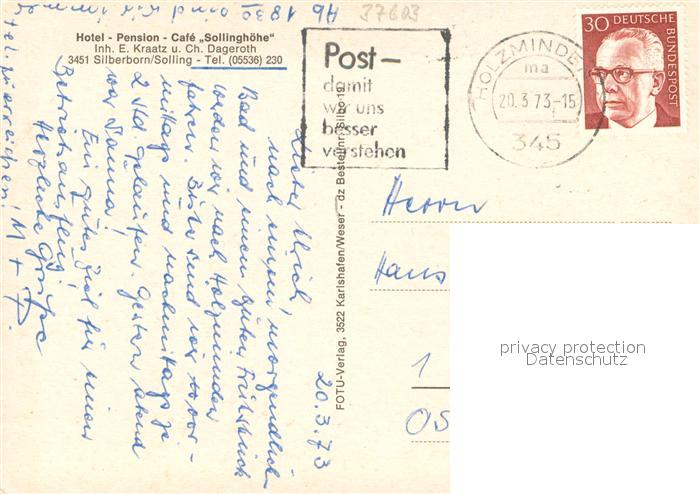 Ab 1830 sind wir immer
tel. zu erreichen! M + P.
37603
Hotel - Pension - Café „Sollinghöhe"
Inh. E. Kraatz u. Ch. Dageroth
3451 Silberborn/Solling - Tel. (05536) 230
Post-
damit
wir uns
besser
verstehen
HOLZMINDEN
ma
20.3.73-15
345
30 DEUTSCHE
BUNDESPOST
FOTU-Verlag, 3522 Karlshafen/Weser - dz Bestellnr. Silbo
20.3.73
Lieber Ulrich,
nach einem morgendlichen
Bad und einem guten Frühstück
wollen wir nach Holzminden
fahren. Bisher sind wir
mittags und nachmittags je
2 Std. gelaufen. Gestern abend
war Sauna!
Ein gutes Ziel für einen
Betriebsausflug!
Herzliche Grüße
Herrn
Hans
1
OS
privacy protection
Datenschutz